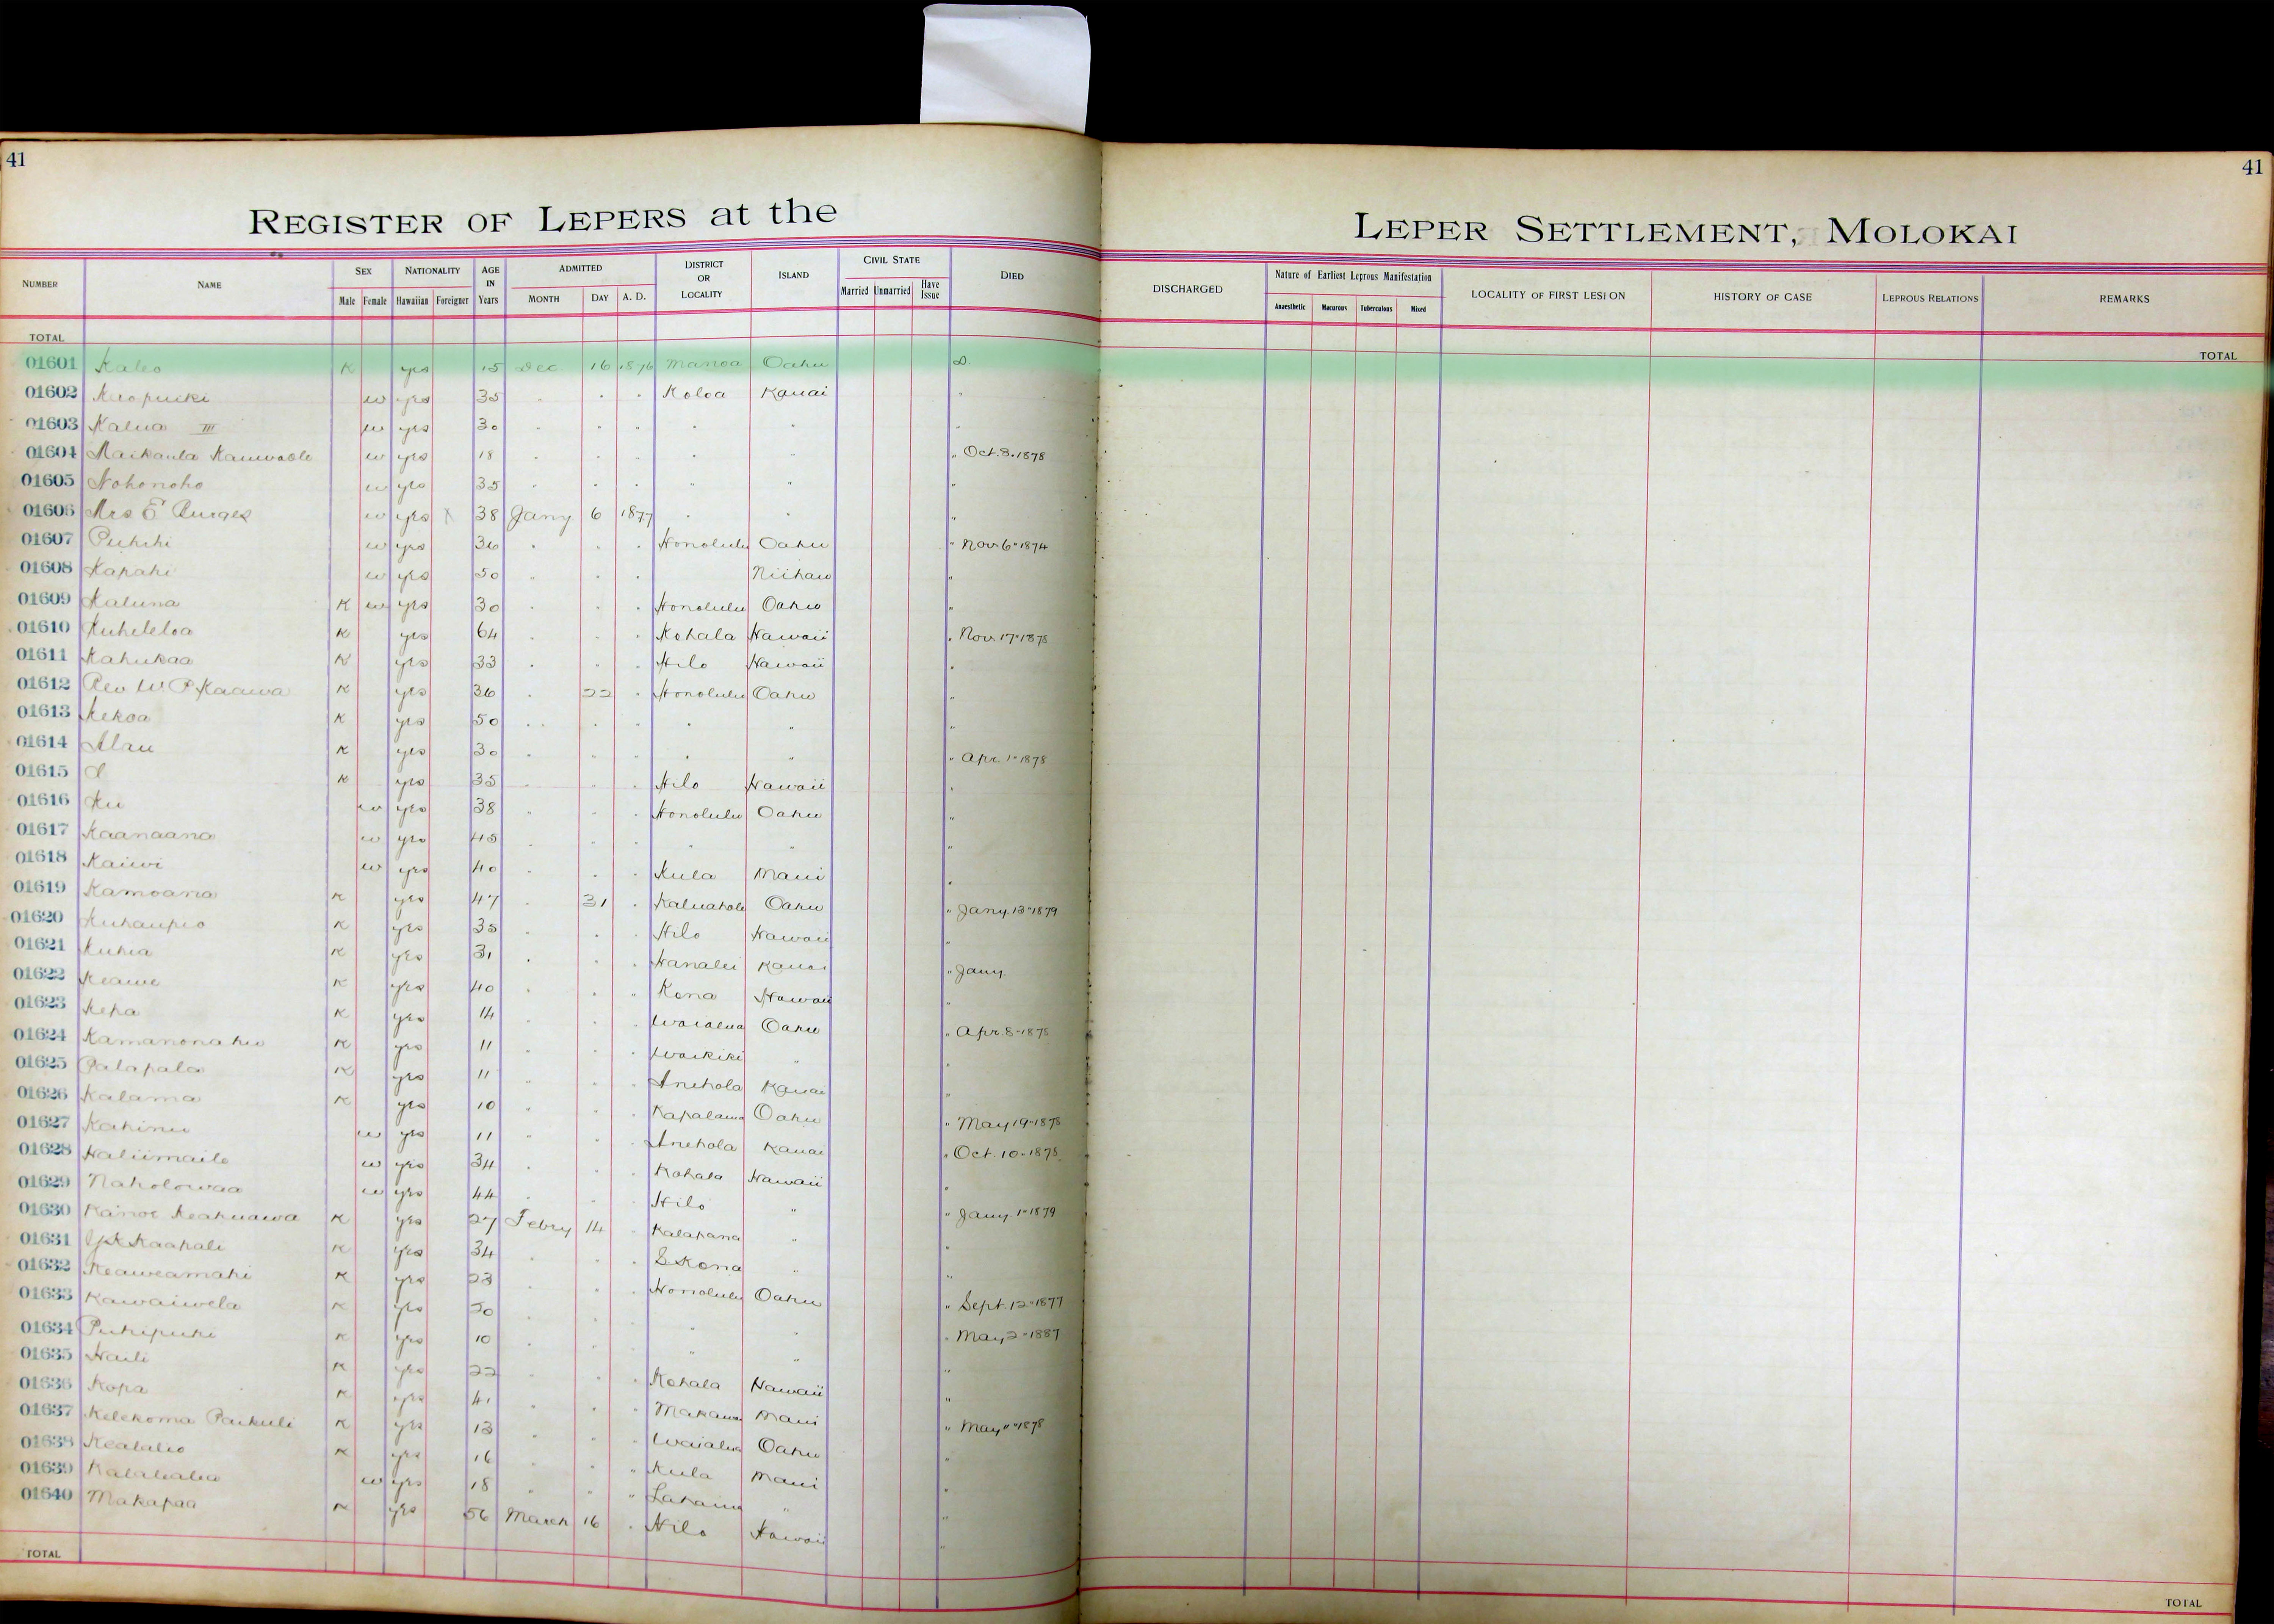 41
41
REGISTER OF LEPERS at the LEPER SETTLEMENT, MOLOKAI
NUMBER NAME SEX Male Female NATIONALITY Hawaiian Foreigner AGE IN Years ADMITTED MONTH DAY A. D. DISTRICT OR LOCALITY ISLAND CIVIL STATE Married Unmarried Have Issue DIED DISCHARGED Nature of Earliest Leprous Manifestation Anaesthetic Macurous Tuberculous Mixed LOCALITY OF FIRST LESION HISTORY OF CASE LEPROUS RELATIONS REMARKS
TOTAL TOTAL
01601 Kaleo K yes 15 Dec 16 1876 Manoa Oahu D.
01602 w yes 35 " " " Koloa Kauai "
01603 Kalua III w yes 30 " " " " " "
01604 Maikaula w yes 18 " " " " " " Oct. 3. 1878
01605 Nohonoho w yes 35 " " " " " "
01606 Mrs E Burges w yes X 38 Jany 6 1877 " " "
01607 Puhihi w yes 36 " " " Honolulu Oahu " Nov 6 - 1874
01608 Kapahi w yes 50 " " " Niihau "
01609 Kaluna K w yes 30 " " " Honolulu Oahu "
01610 Kuheleloa K yes 64 " " " Kohala Hawaii " Nov 17 - 1878
01611 Kahukaa K yes 33 " " " Hilo Hawaii "
01612 Rev W. P. Kaawa K yes 36 " 22 " Honolulu Oahu "
01613 Kekoa K yes 50 " " " " " "
01614 Alau K yes 30 " " " " " " Apr. 1 - 1878
01615 K yes 35 " " " Hilo Hawaii "
01616 Ku w yes 38 " " " Honolulu Oahu "
01617 Kaanaana w yes 45 " " " " " "
01618 Kaiwi w yes 40 " " " Kula Maui "
01619 Kamoana K yes 47 " 31 " Kaluahole Oahu " Jany. 13 - 1879
01620 Kuhaupio K yes 35 " " " Hilo Hawaii "
01621 Kuhia K yes 31 " " " Hanalei Kauai " Jany.
01622 Keawe K yes 40 " " " Kona Hawaii "
01623 Kepa K yes 14 " " " Waialua Oahu " Apr. 8 - 1878
01624 Kamanonahu K yes 11 " " " Waikiki " "
01625 Palapala K yes 11 " " " Anehola Kauai "
01626 Kalama K yes 10 " " " Kapalama Oahu " May 19 - 1878
01627 Kahinu w yes 11 " " " Anehola Kauai " Oct. 10 - 1878
01628 Haliimaile w yes 34 " " " Kohala Hawaii "
01629 Naholowaa w yes 44 " " " Hilo " " Jany. 1 - 1879
01630 Kanoe Keakuawa K yes 27 Febry 14 " Kalapana " "
01631 Kaapali K yes 34 " " " S Kona " "
01632 Keaweamahi K yes 23 " " " Honolulu Oahu " Sept. 12 - 1877
01633 Kawaiwela K yes 20 " " " " " " May 2 - 1887
01634 Puhipuhi K yes 10 " " " " " "
01635 Haili K yes 22 " " " Kohala Hawaii "
01636 Kopa K yes 41 " " " Makawao Maui " May 11 - 1878
01637 Kelekoma Paikuli K yes 13 " " " Waialua Oahu "
01638 K yes 16 " " " Kula Maui "
01639 w yes 18 " " " Lahaina " "
01640 Makapaa K yes 56 March 16 " Hilo Hawaii "
TOTAL TOTAL